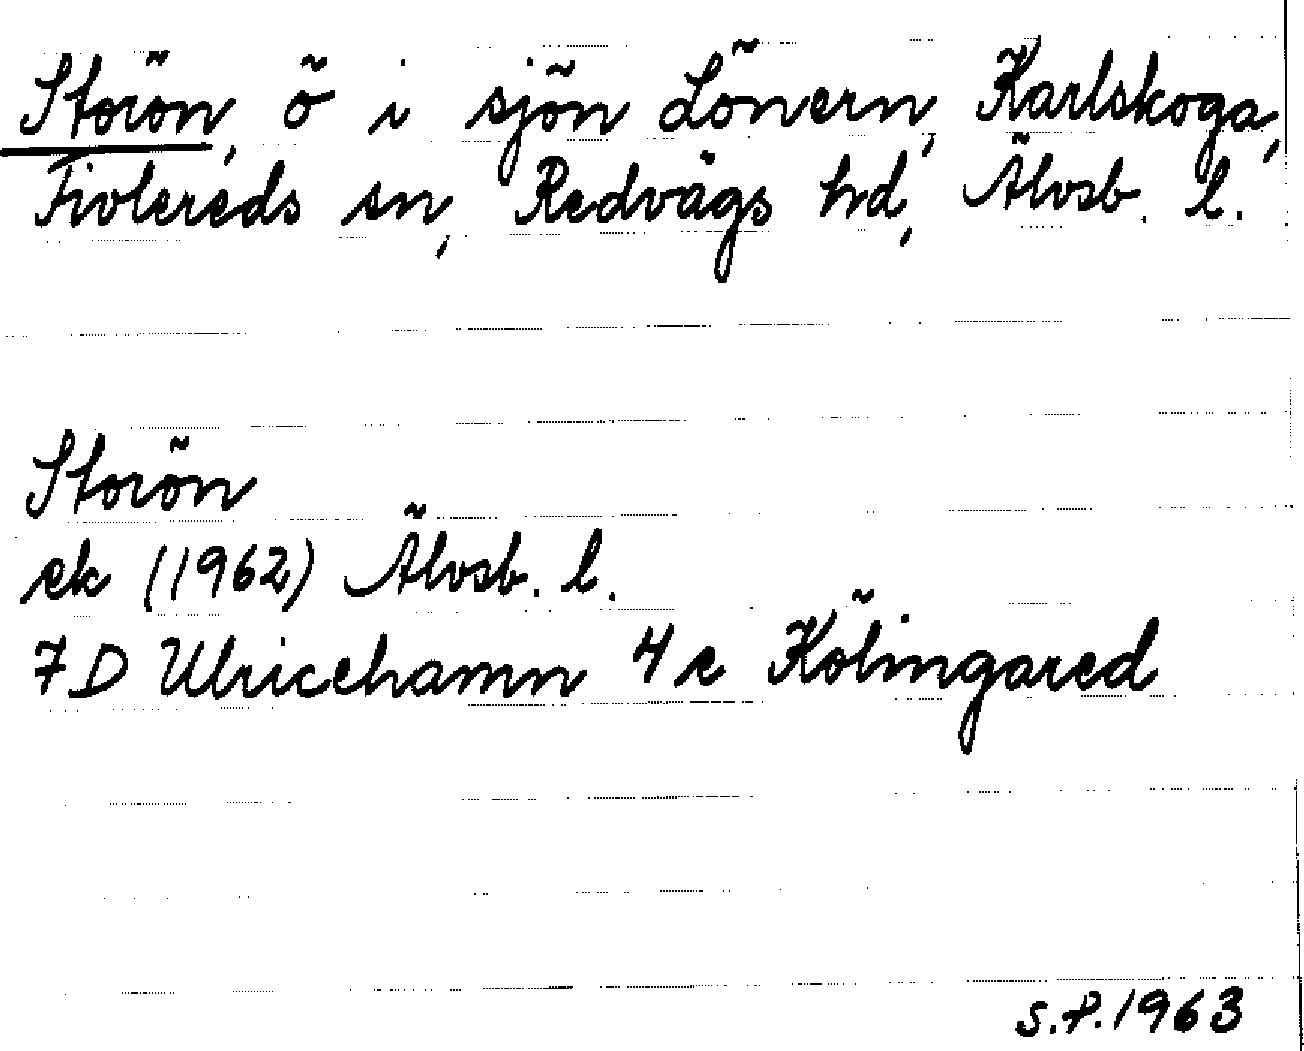 Storön, ö i sjön Lönern, Karlskoga,
Fivlereds sn, Redvägs hd, Älvsb. l.
Storön
ek (1962) Älvsb. l.
7D Ulricehamn 4e Kölingared
S.P. 1963